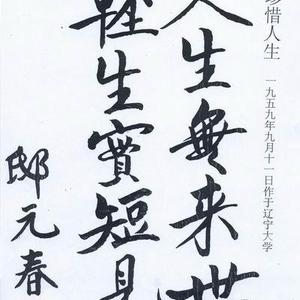 珍惜人生
一九五九年九月十一日作于辽宁大学
人生無来世
輕生實短見
邸元春